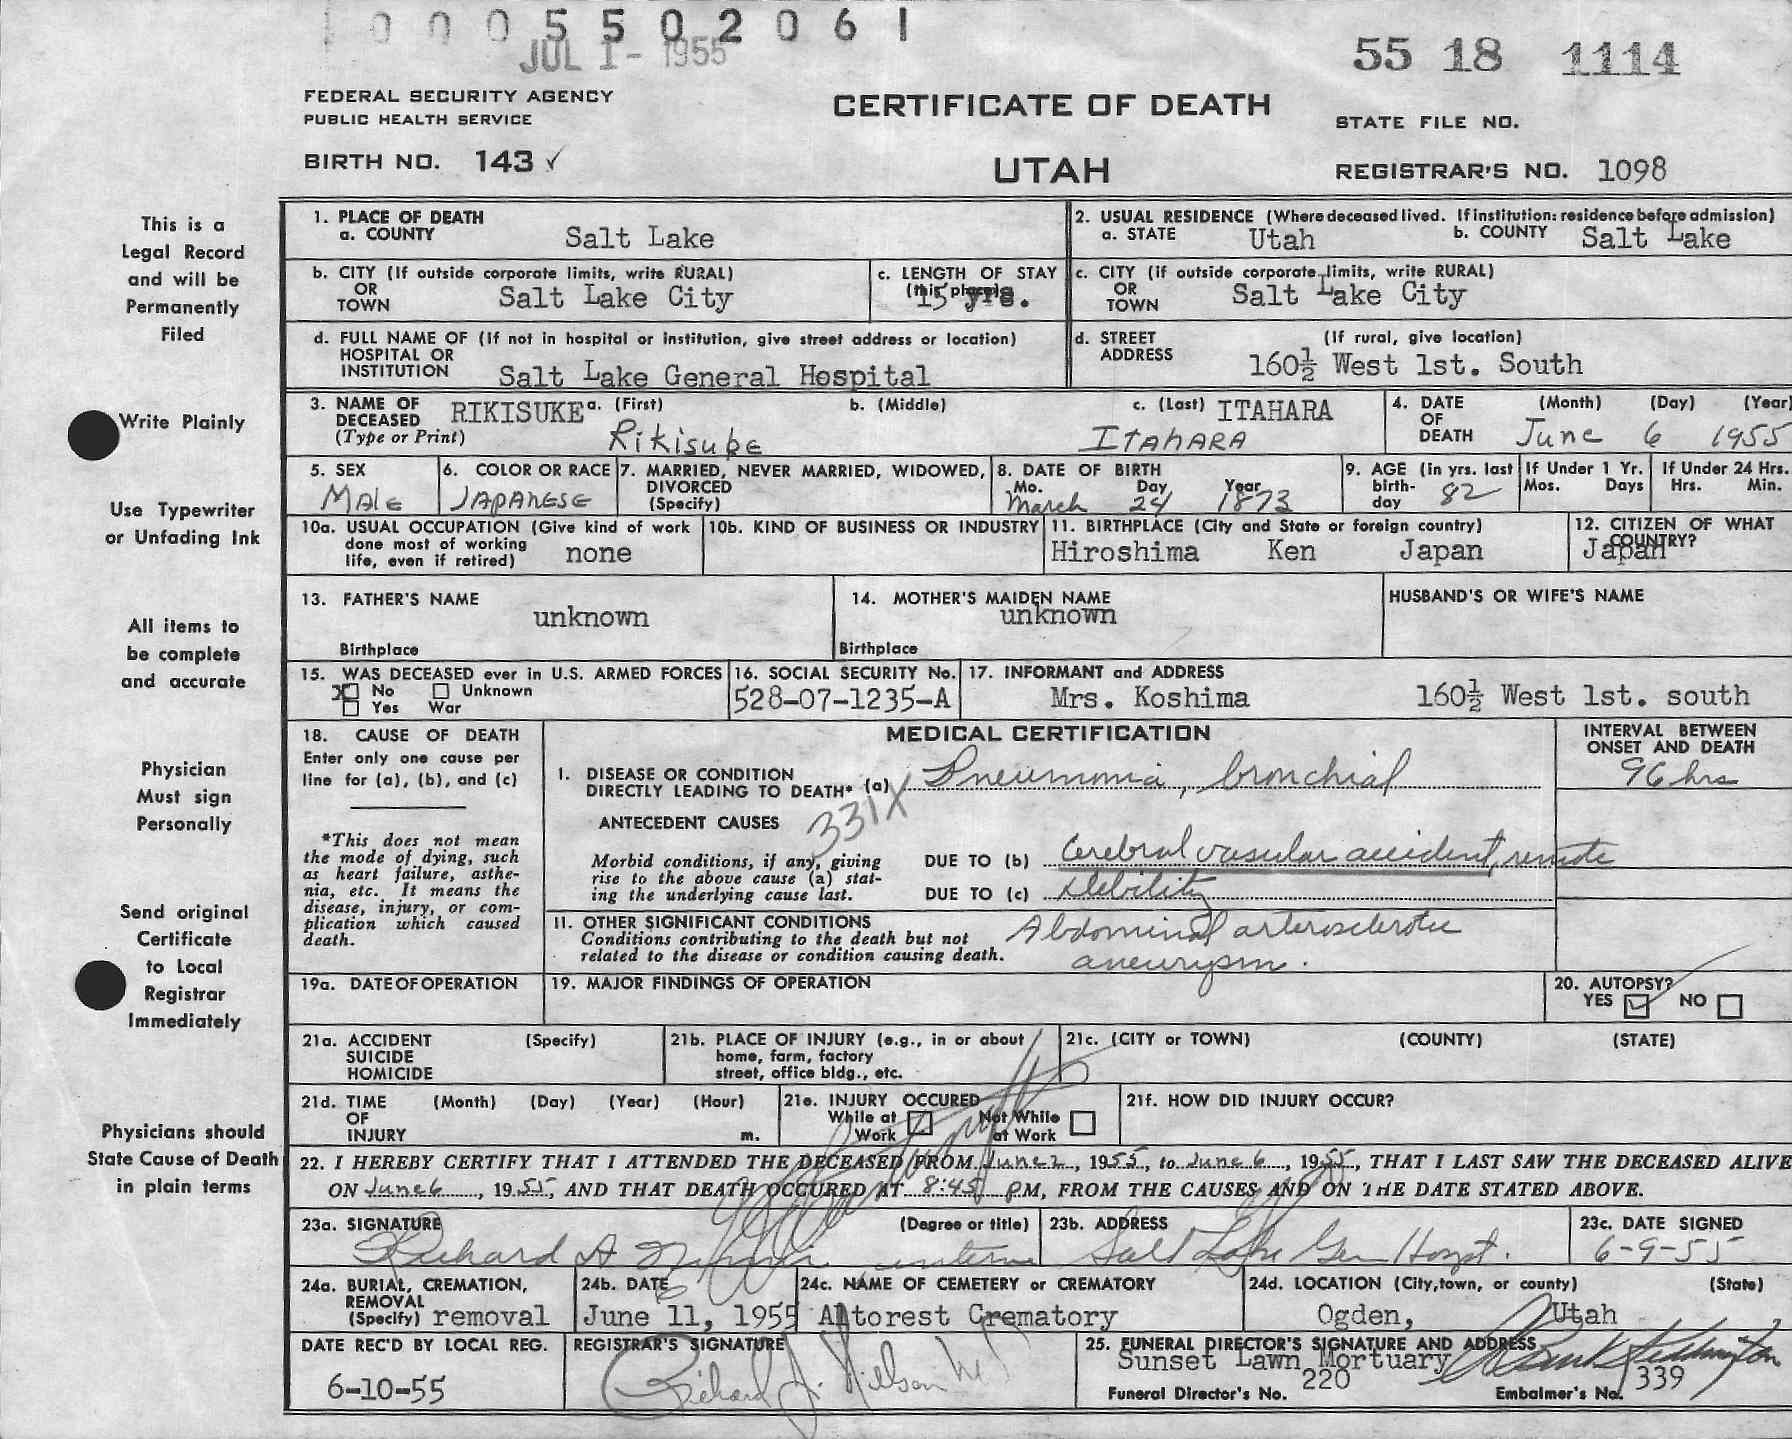 0 0 0 5 5 0 2 0 6 1
JUL 1 - 1955
55 18 1114
FEDERAL SECURITY AGENCY
PUBLIC HEALTH SERVICE
CERTIFICATE OF DEATH
STATE FILE NO.
BIRTH NO. 143 ✓
UTAH
REGISTRAR'S NO. 1098
This is a
Legal Record
and will be
Permanently
Filed
Write Plainly
Use Typewriter
or Unfading Ink
All items to
be complete
and accurate
Physician
Must sign
Personally
Send original
Certificate
to Local
Registrar
Immediately
Physicians should
State Cause of Death
in plain terms
1. PLACE OF DEATH
a. COUNTY Salt Lake
2. USUAL RESIDENCE (Where deceased lived. If institution: residence before admission)
a. STATE Utah b. COUNTY Salt Lake
b. CITY (If outside corporate limits, write RURAL)
OR
TOWN Salt Lake City
c. LENGTH OF STAY
(this place)
15 yrs.
c. CITY (if outside corporate limits, write RURAL)
OR
TOWN Salt Lake City
d. FULL NAME OF (If not in hospital or institution, give street address or location)
HOSPITAL OR
INSTITUTION Salt Lake General Hospital
d. STREET (If rural, give location)
ADDRESS 160½ West 1st. South
3. NAME OF DECEASED (Type or Print)
RIKISUKE a. (First) b. (Middle) c. (Last) ITAHARA
Rikisuke ITAHARA
4. DATE OF DEATH (Month) (Day) (Year)
June 6 1955
5. SEX
Male
6. COLOR OR RACE
JAPANESE
7. MARRIED, NEVER MARRIED, WIDOWED,
DIVORCED
(Specify)
8. DATE OF BIRTH
Mo. Day Year
March 24 1873
9. AGE (in yrs. last birth-day 82
If Under 1 Yr.
Mos. Days
If Under 24 Hrs.
Hrs. Min.
10a. USUAL OCCUPATION (Give kind of work
done most of working
life, even if retired) none
10b. KIND OF BUSINESS OR INDUSTRY
11. BIRTHPLACE (City and State or foreign country)
Hiroshima Ken Japan
12. CITIZEN OF WHAT
COUNTRY?
Japan
13. FATHER'S NAME
unknown
Birthplace
14. MOTHER'S MAIDEN NAME
unknown
Birthplace
HUSBAND'S OR WIFE'S NAME
15. WAS DECEASED ever in U.S. ARMED FORCES
X No Unknown
Yes War
16. SOCIAL SECURITY No.
528-07-1235-A
17. INFORMANT and ADDRESS
Mrs. Koshima 160½ West 1st. south
18. CAUSE OF DEATH
Enter only one cause per
line for (a), (b), and (c)
*This does not mean
the mode of dying, such
as heart failure, asthe-
nia, etc. It means the
disease, injury, or com-
plication which caused
death.
MEDICAL CERTIFICATION
INTERVAL BETWEEN
ONSET AND DEATH
I. DISEASE OR CONDITION
DIRECTLY LEADING TO DEATH* (a) Pneumonia, bronchial
96 hrs
331X
ANTECEDENT CAUSES
Morbid conditions, if any, giving
rise to the above cause (a) stat-
ing the underlying cause last.
DUE TO (b) Cerebral vascular accident, remote
DUE TO (c) Debility
II. OTHER SIGNIFICANT CONDITIONS
Conditions contributing to the death but not
related to the disease or condition causing death.
Abdominal arterosclerotic
aneurysm.
19a. DATE OF OPERATION
19. MAJOR FINDINGS OF OPERATION
20. AUTOPSY?
YES ✓ NO
21a. ACCIDENT (Specify)
SUICIDE
HOMICIDE
21b. PLACE OF INJURY (e.g., in or about
home, farm, factory
street, office bldg., etc.
21c. (CITY or TOWN) (COUNTY) (STATE)
21d. TIME (Month) (Day) (Year) (Hour)
OF
INJURY m.
21e. INJURY OCCURED
While at Work
Not While at Work
21f. HOW DID INJURY OCCUR?
22. I HEREBY CERTIFY THAT I ATTENDED THE DECEASED FROM June 2, 1955, to June 6, 1955, THAT I LAST SAW THE DECEASED ALIVE
ON June 6, 1955, AND THAT DEATH OCCURED AT 8:45 PM, FROM THE CAUSES AND ON THE DATE STATED ABOVE.
23a. SIGNATURE (Degree or title)
Richard A interne
23b. ADDRESS
Salt Lake Gen Hospt.
23c. DATE SIGNED
6-9-55
24a. BURIAL, CREMATION,
REMOVAL
(Specify) removal
24b. DATE
June 11, 1955
24c. NAME OF CEMETERY or CREMATORY
Altorest Crematory
24d. LOCATION (City, town, or county) (State)
Ogden, Utah
DATE REC'D BY LOCAL REG.
6-10-55
REGISTRAR'S SIGNATURE
Richard J. Nilson M.D
25. FUNERAL DIRECTOR'S SIGNATURE AND ADDRESS
Sunset Lawn Mortuary
Funeral Director's No. 220
Embalmer's No. 339